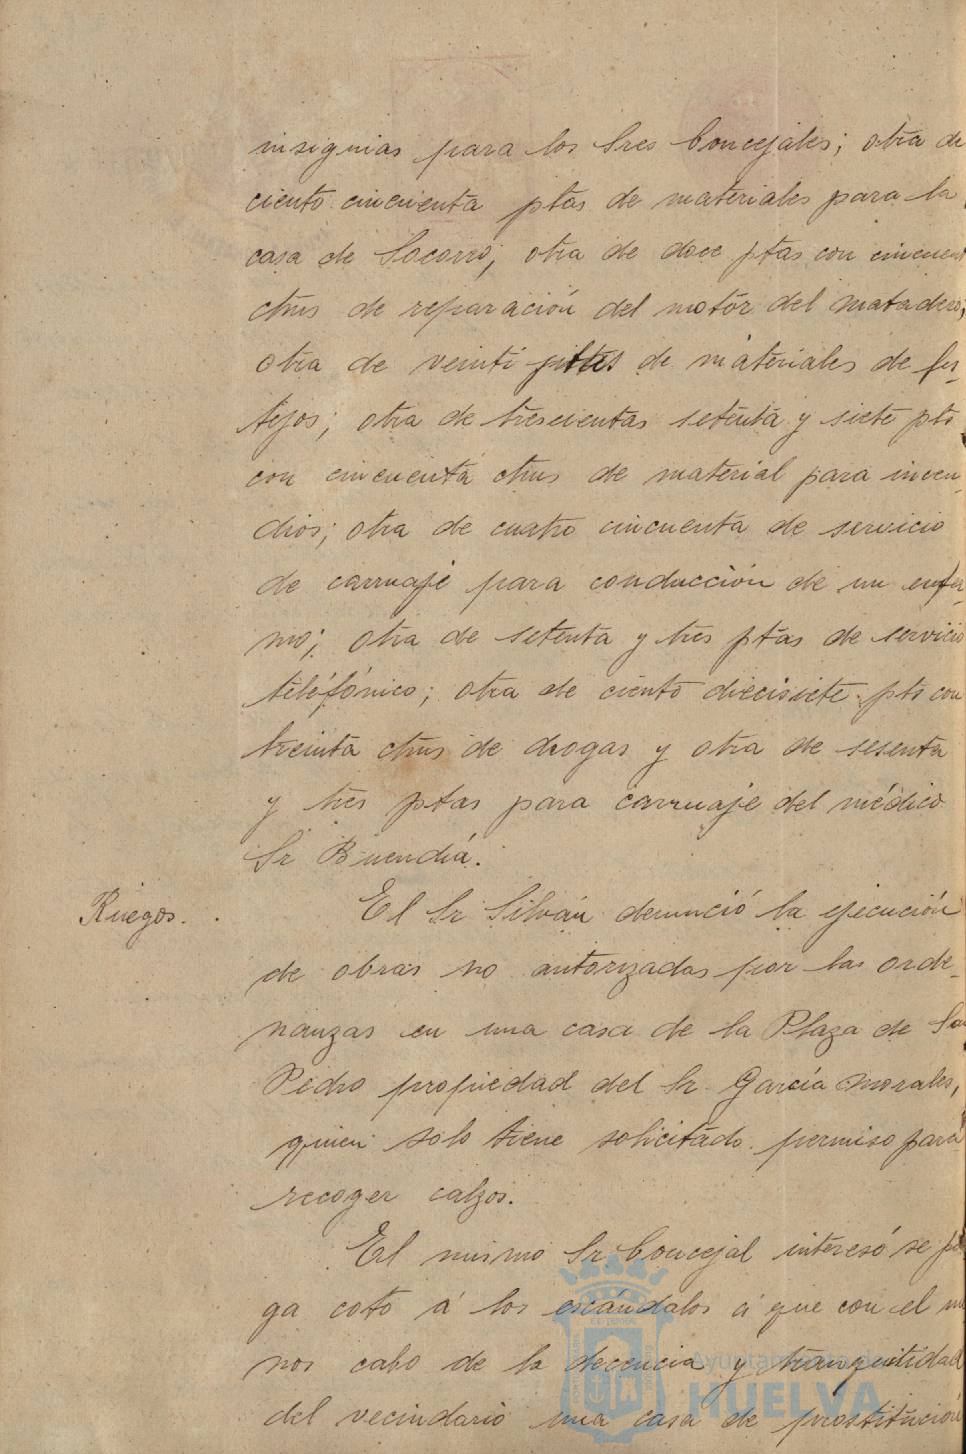 insignias para los Sres Concejales; otra de
ciento cincuenta ptas de materiales para la
casa de Socorro; otra de doce ptas con cincuent
ctms de reparación del motor del matadero;
otra de veinti de materiales de fes-
tejos; otra de trescientas setenta y siete pts
con cincuenta ctms de material para incen-
dios; otra de cuatro cincuenta de servicio
de carruaje para conducción de un enfer-
mo; otra de setenta y tres ptas de servicio
telefónico; otra de ciento diecisiete pts con
treinta ctms de drogas y otra de sesenta
y tres ptas para carruaje del médico
Sr Buendía.
Ruegos. El Sr Silván denunció la ejecución
de obras no autorizadas por las orde-
nanzas en una casa de la Plaza de Sa
Pedro propiedad del Sr. García Morales,
quien solo tiene solicitado permiso para
recoger calzos.
El mismo Sr Concejal interesó se po
ga coto á los escándalos á que con el me
nos cabo de la decencia y tranquilidad
del vecindario una casa de prostitución
Ayuntamiento de
HUELVA